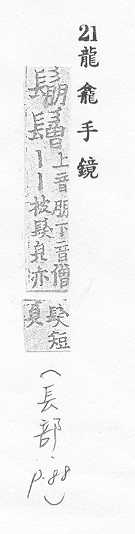 21龍龕手鏡
鬅鬙上音朋下音僧
丨丨披髮皃亦
髮短
皃
（長部．p.88）